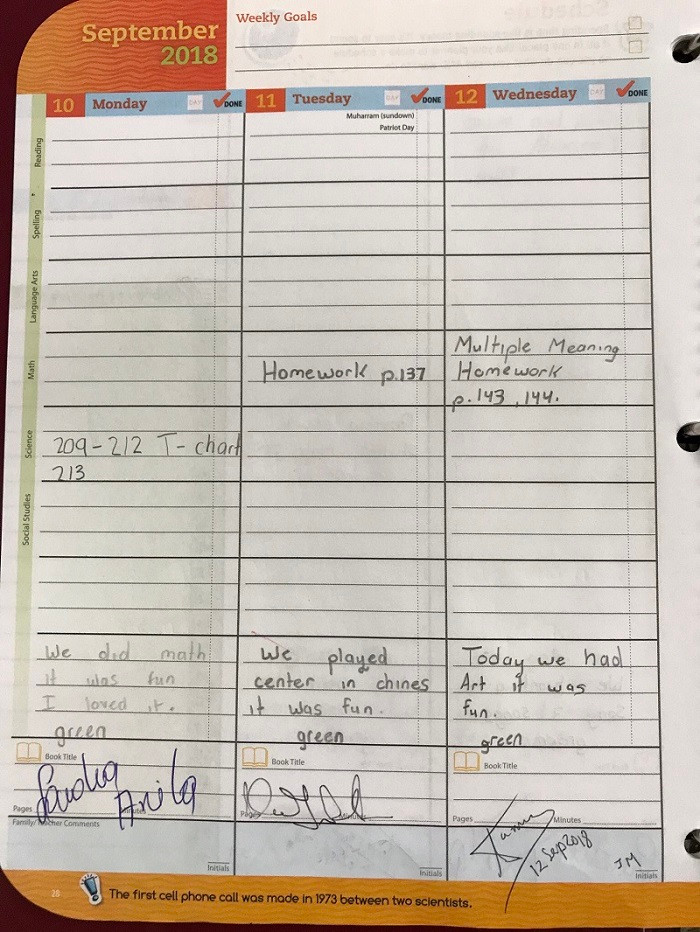 September
2018
Weekly Goals
10 Monday DAY DONE
11 Tuesday DAY DONE
12 Wednesday DAY DONE
Muharram (sundown)
Patriot Day
Reading
Spelling
Language Arts
Math
Science
Social Studies
Homework p.137
Multiple Meaning
Homework
p.143, 144.
209-212 T-chart
213
We did math
it was fun
I loved it.
green
We played
center in chines
it was fun.
green
Today we had
Art it was
fun.
green
Book Title
Book Title
Book Title
Anita
Pages Minutes
Pages Minutes
Pages Minutes
Family/Teacher Comments
12 Sep 2018
JM
Initials
Initials
Initials
28
The first cell phone call was made in 1973 between two scientists.